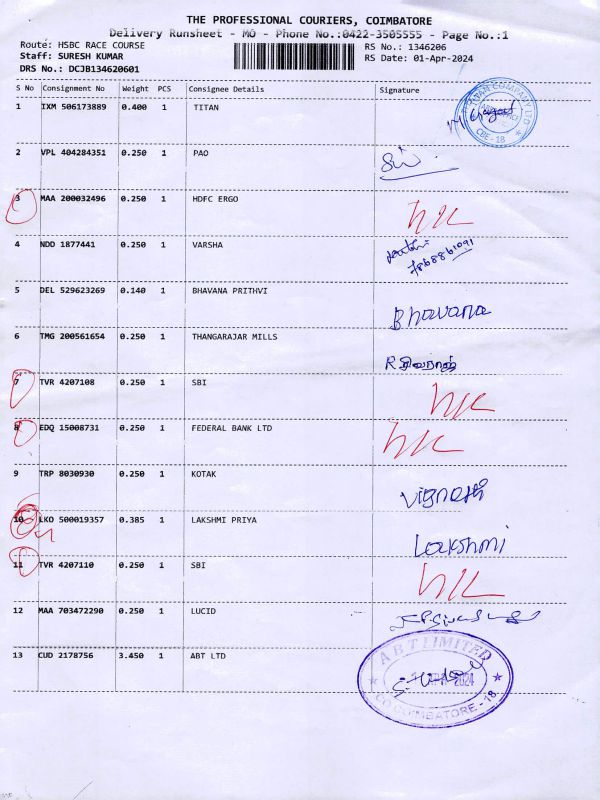 THE PROFESSIONAL COURIERS, COIMBATORE
Delivery Runsheet - MO - Phone No.:0422-3505555 - Page No.:1
Route: HSBC RACE COURSE RS No.: 1346206
Staff: SURESH KUMAR RS Date: 01-Apr-2024
DRS No.: DCJB134620601
S No Consignment No Weight PCS Consignee Details Signature
1 IXM 506173889 0.400 1 TITAN
CBE-18
2 VPL 404284351 0.250 1 PAO
3 MAA 200032496 0.250 1 HDFC ERGO
4 NDD 1877441 0.250 1 VARSHA
5 DEL 529623269 0.140 1 BHAVANA PRITHVI
Bhavana
6 TMG 200561654 0.250 1 THANGARAJAR MILLS
7 TVR 4207108 0.250 1 SBI
8 EDQ 15008731 0.250 1 FEDERAL BANK LTD
9 TRP 8030930 0.250 1 KOTAK
10 LKO 500019357 0.385 1 LAKSHMI PRIYA
Lakshmi
11 TVR 4207110 0.250 1 SBI
12 MAA 703472290 0.250 1 LUCID
13 CUD 2178756 3.450 1 ABT LTD
ABT LIMITED
2024
COIMBATORE - 18